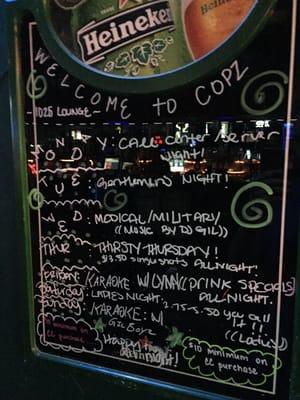 Heineken
WELCOME TO COPZ
1025 LOUNGE~
MONDAY: CALL Center Server
Night!
TUE: Gentlemen's NIGHT!
WED: MEDICAL/MILITARY
((MUSIC BY DJ GIL))
THUR: THIRSTY THURSDAY!
$3.50 single shots ALL NIGHT!
FRIDAY: KARAOKE W/LYNN (DRINK SPECIALS)
ALL NIGHT.
Saturday: LADIES NIGHT
2.75-3.50 you call
it!!
Sunday: KARAOKE: W/
((Ladies))
GIL BOYZ
minimum on
cc purchase
HAPPY
$10 minimum on
cc purchase